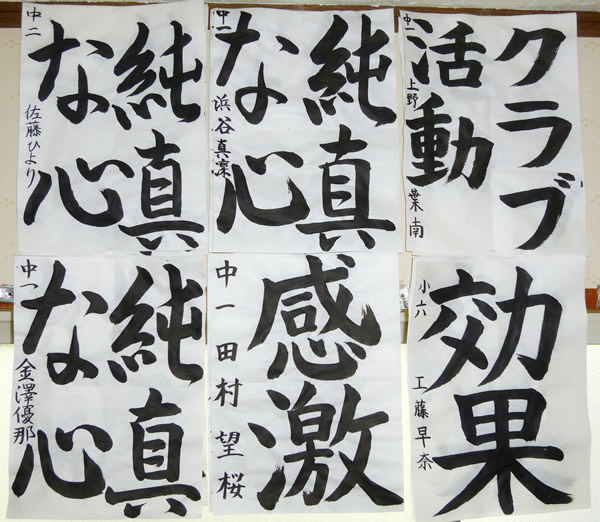 純真
な心
中二
佐藤ひより
純真
な心
中一
浜谷真凜
クラブ
活動
中一
上野
葉南
純真
な心
中一
金澤優那
感激
中一田村望桜
効果
小六
工藤早奈